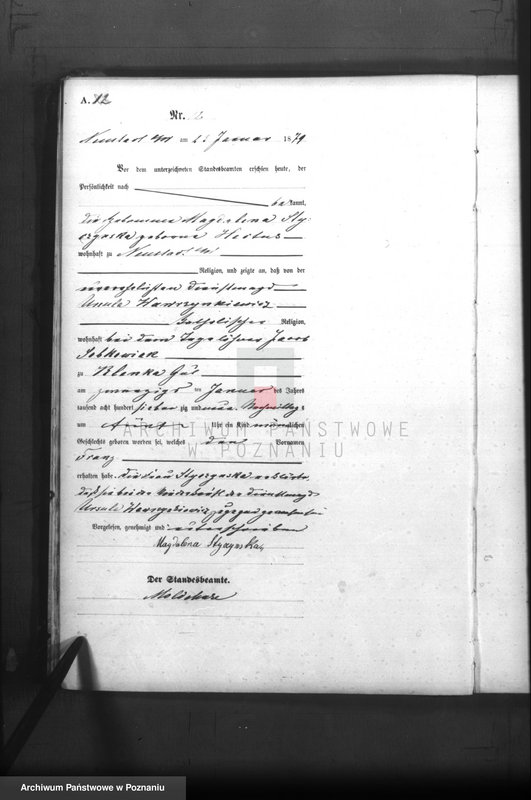 A. 12
Nr.
Neustadt a/W am 25 Januar 1879
Vor dem unterzeichneten Standesbeamten erschien heute, der
Persönlichkeit nach
be kannt,
die Hebamme Magdalena Sty-
czynska geborene
wohnhaft zu Neustadt a/W
Religion, und zeigte an, daß von der
unverehelichten Dienstmagd
Ursula Wawrzynkiewicz
katholischer Religion,
wohnhaft bei dem Tagelöhner Jacob
Sobkowiak
zu Klenka Gut
am zwanzigs ten Januar des Jahres
tausend acht hundert sieben zig und neun Nachmittags
um Uhr ein Kind männlichen
Geschlechts geboren worden sei, welches den Vornamen
Franz
erhalten habe. Die Frau Styczynska erklärte,
daß sie bei der Niederkunft der Dienstmagd
Ursula Wawrzynkiewicz zugegen gewesen sei
Vorgelesen, genehmigt und unterschrieben
Magdalena Styzynska
Der Standesbeamte.
ARCHIWUM PAŃSTWOWE
W POZNANIU
Archiwum Państwowe w Poznaniu
Archiwum Państwowe w Poznaniu